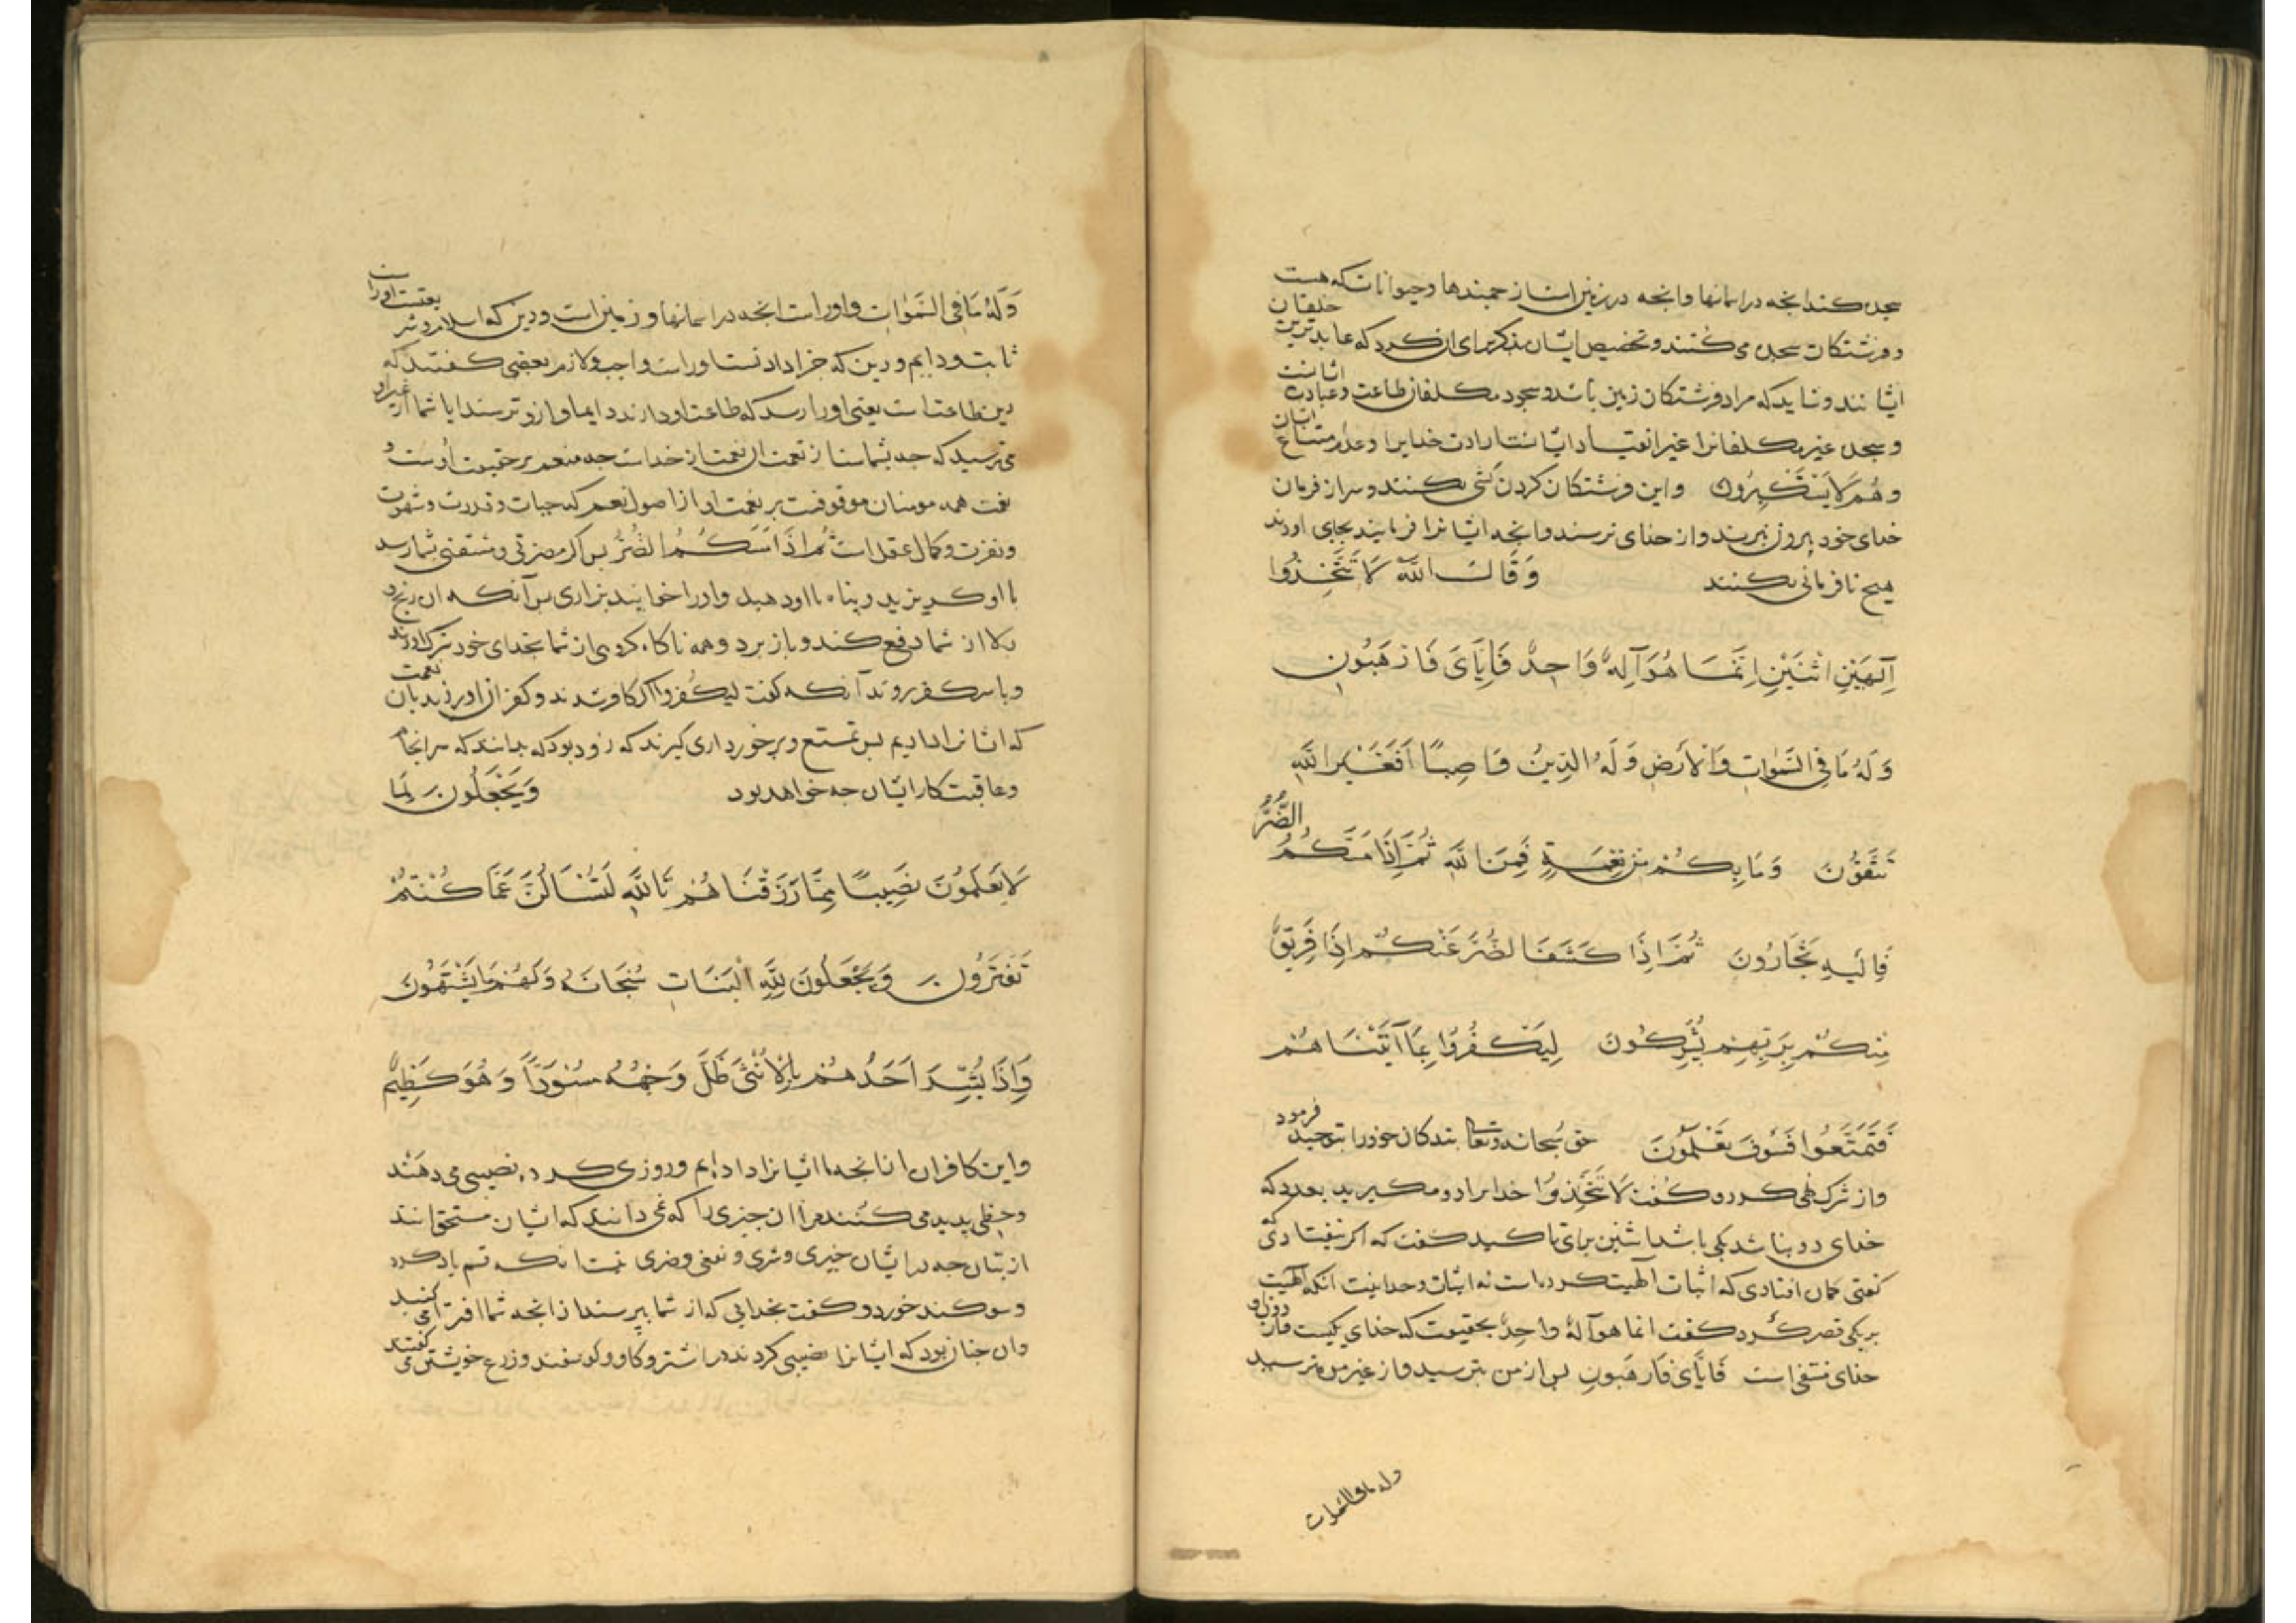 سجده کند انجه در اسمانها وانجه در زمین است از جمبندها وحیوانات که هست
وفرشتکان سجده می کنند وتخصیص ایشان بذکر برای ان کرد که عابدترین خلقان
ایشانند وشاید که مراد فرشتکان زمین باشد وسجود مکلفان طاعت وعبادت ایشانست
وسجده غیر مکلفانرا غیر انقیاد ایشانست ارادت خدایرا وعدم امتناع ایشان
وهُم لَا یَسْتَکْبِرُونَ واین فرشتکان کردن کشی نکنند وسر از فرمان
خدای خود بیرون نبرند واز خدای ترسند وانجه ایشانرا فرمایند بجای اورند
هیج نافرمانی نکنند وَقَالَ اللَّهُ لَا تَتَّخِذُوا
اِلٰهَیْنِ اثْنَیْنِ اِنَّمَا هُوَ اِلٰهٌ وَاحِدٌ فَاِیَّایَ فَارْهَبُونِ
وَلَهُ مَا فِی السَّمٰوَاتِ وَالْاَرْضِ وَلَهُ الدِّینُ وَاصِبًا اَفَغَیْرَ اللَّهِ
تَتَّقُونَ وَمَا بِکُمْ مِنْ نِعْمَةٍ فَمِنَ اللَّهِ ثُمَّ اِذَا مَسَّکُمُ الضُّرُّ
فَاِلَیْهِ تَجْأَرُونَ ثُمَّ اِذَا کَشَفَ الضُّرَّ عَنْکُمْ اِذَا فَرِیقٌ
مِنْکُمْ بِرَبِّهِمْ یُشْرِکُونَ لِیَکْفُرُوا بِمَا آتَیْنَاهُمْ
فَتَمَتَّعُوا فَسَوْفَ تَعْلَمُونَ حق سُبحانه وتعالی بندکان خود را بتوحید فرمود
واز شرک نهی کرد وکفت لَا تَتَّخِذُوا خدایرا دو مکیرید بعدد که
خدای دو نباشد یکی باشد اثنین برای تاکید کفت که اکر نیفتادی
کفتی کمان افتادی که اثبات الهیت کرده است نه اثبات وحدانیت انکه الهیت
بر یکی قصر کرد کفت انما هو اله واحِدٌ بحقیقت که خدای یکیست
خدای منتفی است فَاِیَّایَ فَارْهَبُونِ بس از من بترسید واز غیر من مترسید
وله ما فی السموات
وَلَهُ مَا فِی السَّمٰوَاتِ واوراست انجه در اسمانها وزمین است ودین که اسلام
ثابت ودایم ودین که جزا دادنست اوراست واجب ولازم بعضی کفتند که
دین طاعت است یعنی اورا رسد که طاعت او دارند دایما وازو ترسند ایا شما از غیر او
می ترسید که جه بشماست از نعمت ان نعمت از خداست جه منعم بر حقیقت اوست و
نعمت همه مومنان موقوفست بر نعمت او از اصول نعم که حیات وقدرت وشهوت
ونفرت وکمال عقل است ثُمَّ اِذَا مَسَّکُمُ الضُّرُّ بس اکر مضرتی ومشقتی بشما رسد
با او کریزید وپناه با او دهید واورا خوانید بزاری بس آنکه ان رنج و
بلا از شما دفع کند وباز برد وهمه ناکاه کروهی از شما بخدای خود شرک اورند
وبا سر کفر روند آنکه کفت لیکفروا اکر کافر شدند وکفران اورند بان نعمت
که ایشانرا دادیم بس تمتع وبرخورداری کیرند که زود بود که بدانند که سرانجام
وعاقبت کار ایشان جه خواهد بود وَیَجْعَلُونَ لِمَا
لَا یَعْلَمُونَ نَصِیبًا مِمَّا رَزَقْنَاهُمْ تَاللَّهِ لَتُسْأَلُنَّ عَمَّا کُنْتُمْ
تَفْتَرُونَ وَیَجْعَلُونَ لِلَّهِ الْبَنَاتِ سُبْحَانَهُ وَلَهُمْ مَا یَشْتَهُونَ
وَاِذَا بُشِّرَ اَحَدُهُمْ بِالْاُنْثَی ظَلَّ وَجْهُهُ مُسْوَدًّا وَهُوَ کَظِیمٌ
واین کافران از انجه ما ایشانرا داده ایم وروزی کرده نصیبی می دهند
وحظی پدید می کنند مر ان جیزی را که نمی دانند که ایشان مستحق انند
از بتان جه در ایشان خیری وشری ونفعی وضری نیست انکه قسم یاد کرد
وسوکند خورد وکفت بخدایی که از شما بپرسند از انجه شما افترا می کنید
وان جنان بود که ایشانرا نصیبی کردند در اشتر وکاو وکوسفند وزرع خویشتن می کفتند